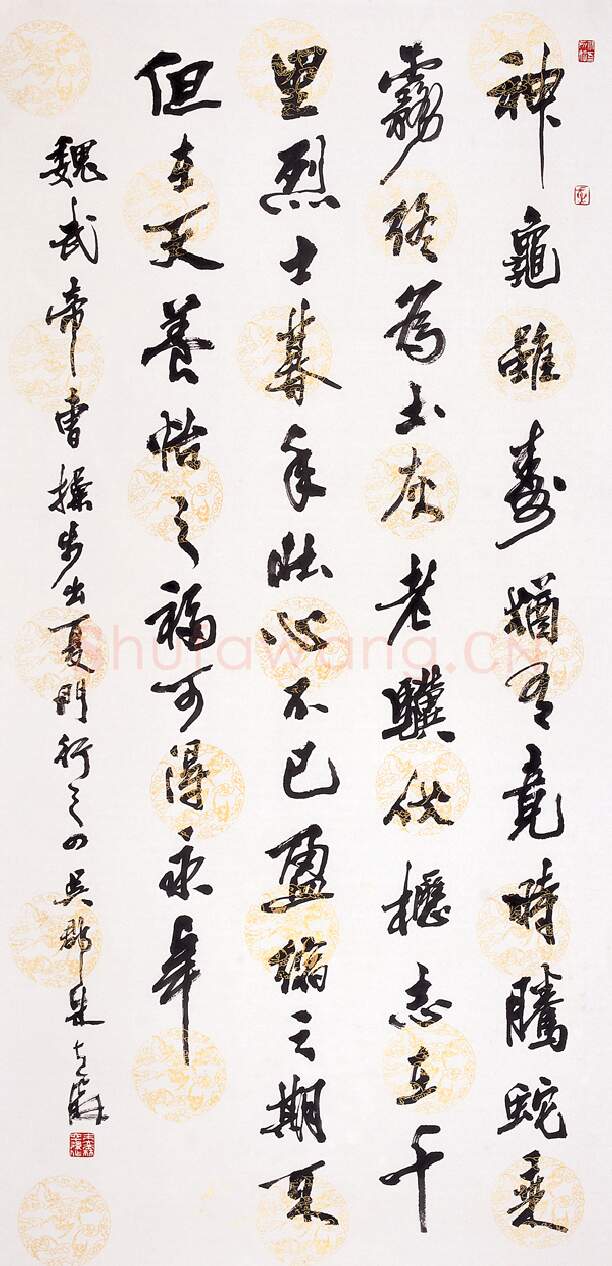 神龜雖壽猶有竟時騰蛇乘
霧終為土灰老驥伏櫪志在千
里烈士暮年壯心不已盈縮之期不
但在天養怡之福可得永年
魏武帝曹操步出夏門行之四吳郡
Shufawang.CN